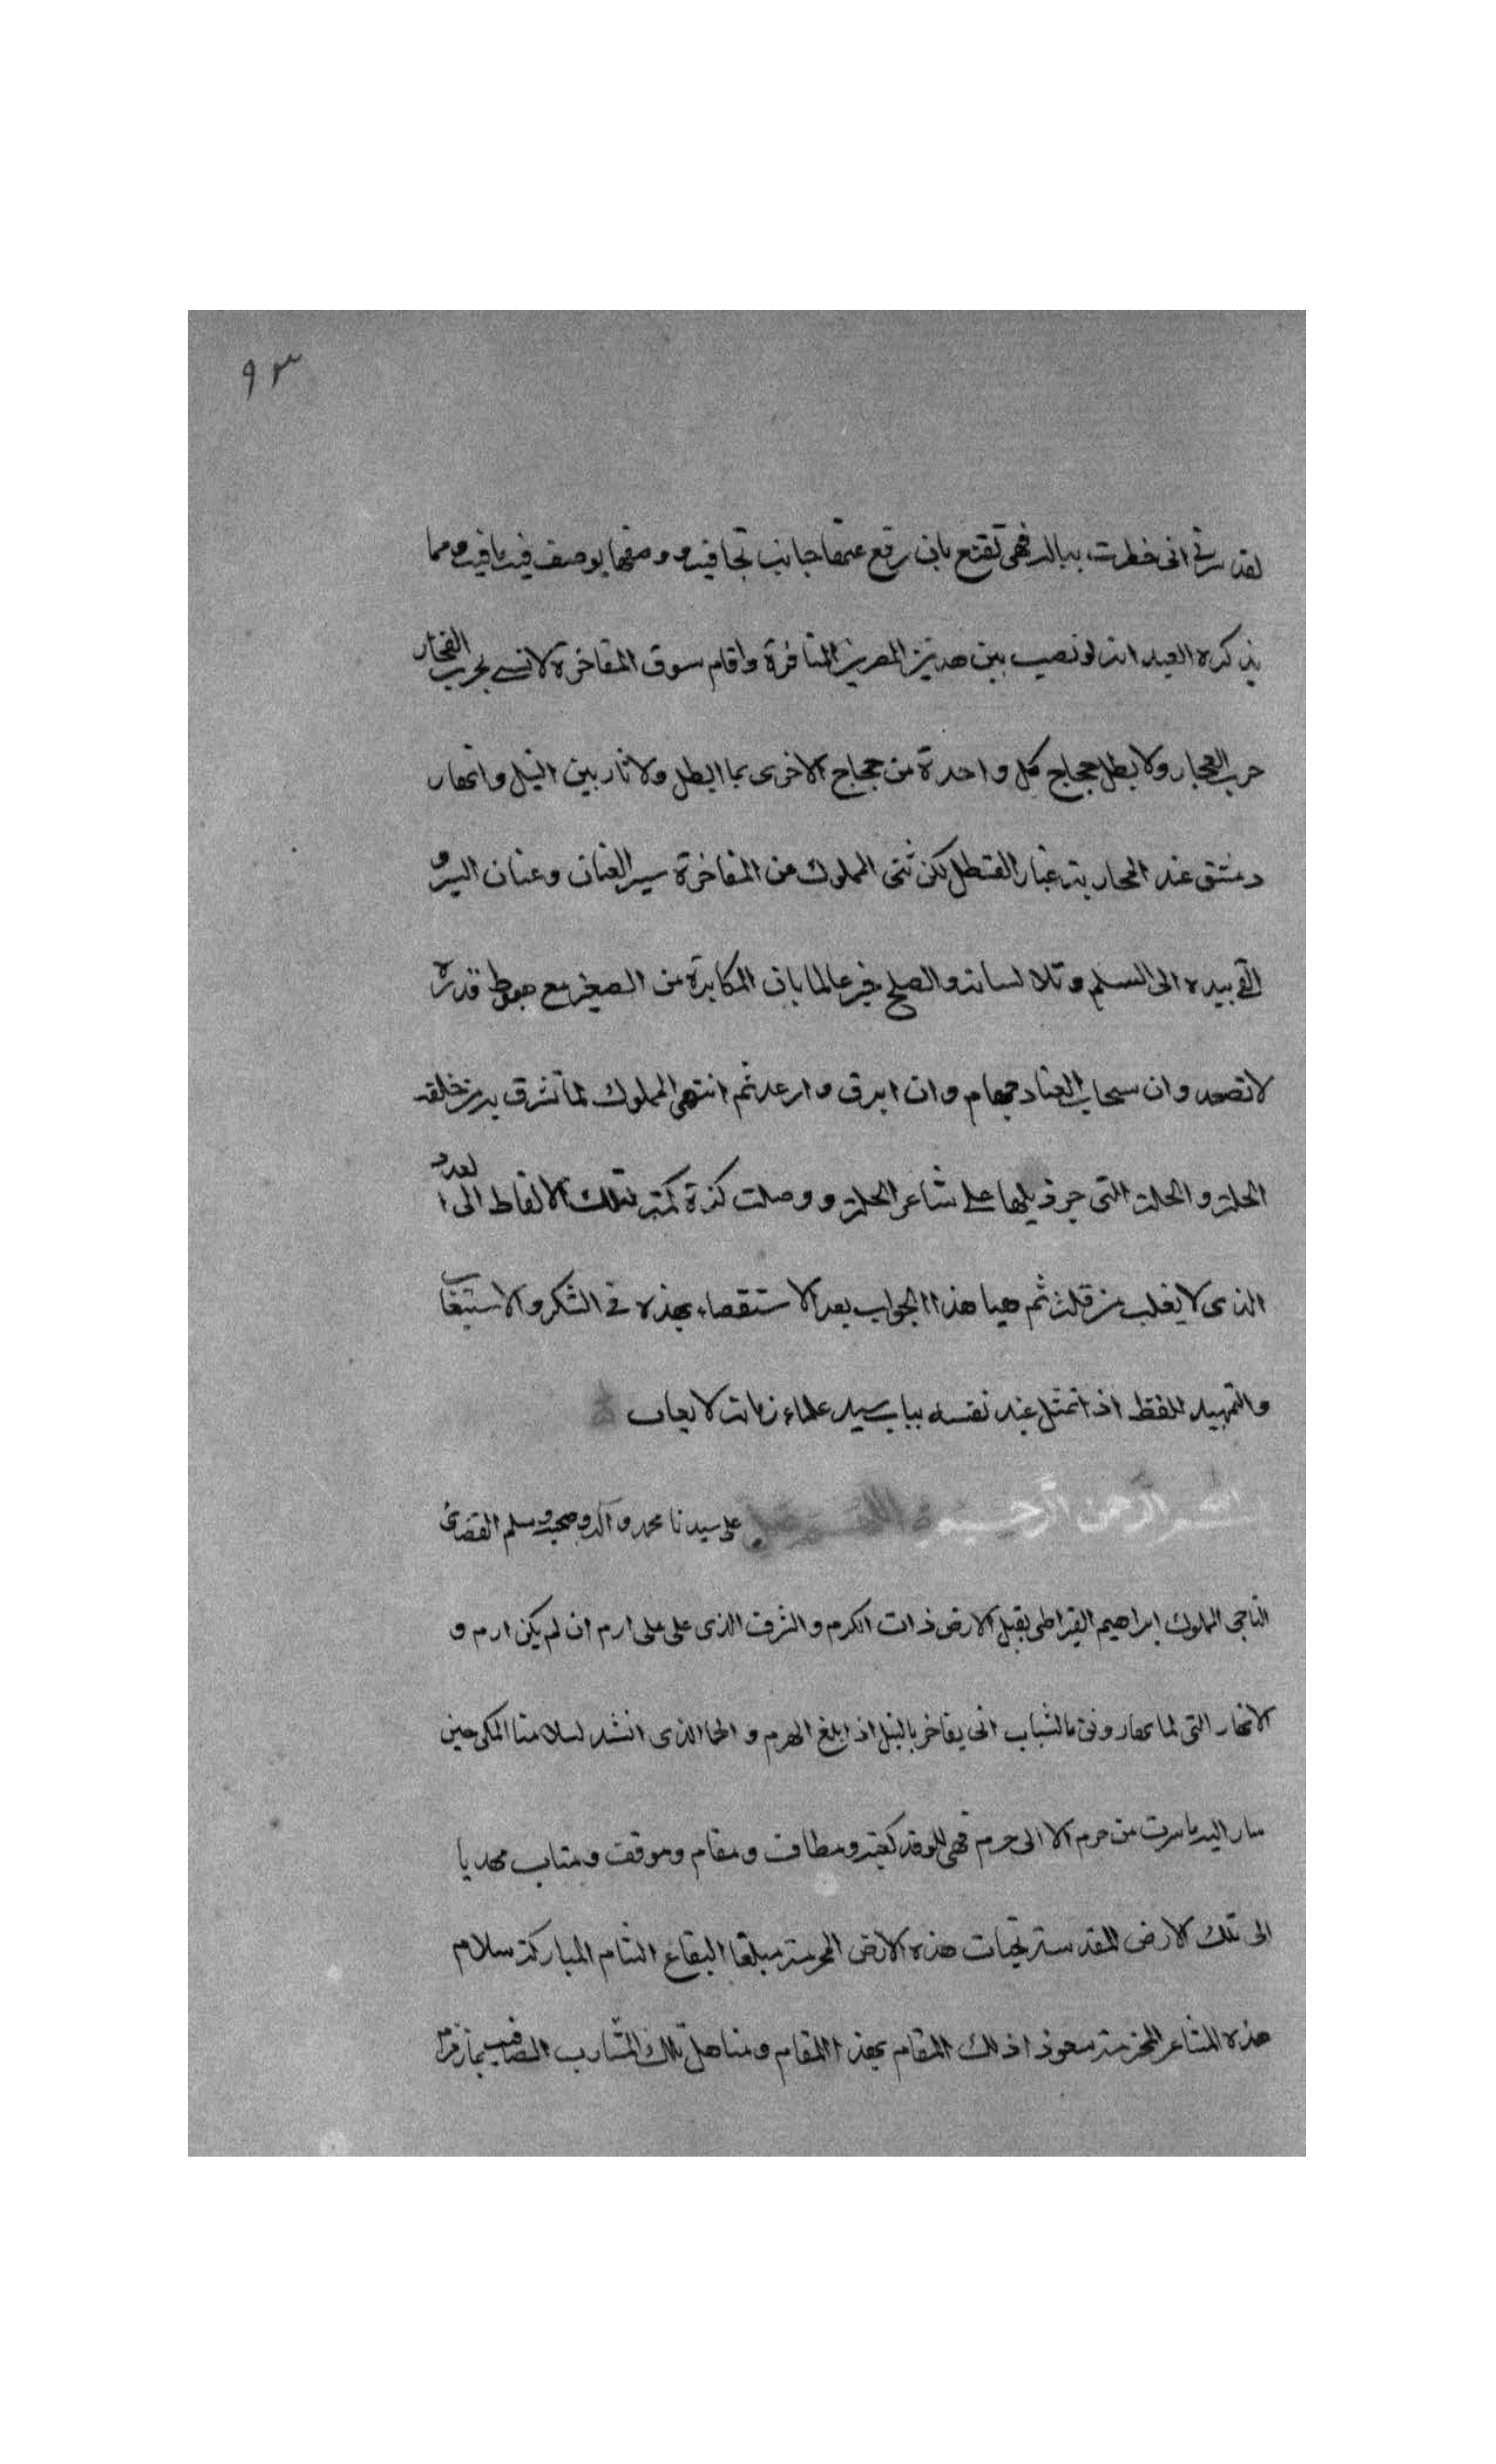 ٩٣
لقد سرني اني خطرت ببالك فهي تقنع بان رفع عنها جانب تجافيه ووصفها بوصف فيه ما فيه ومما
يذكره العبد انه لو نصب بين هذين المصرين المنافرة واقام سوق المفاخرة لانسى بحرب الفخار
حرب الفجار ولا بطل حجاج كل واحدة من حجاج الاخرى بما ابطل ولاثار بين النيل وانهار
دمشق عند المحاربة غبار القسطل لكن ثنى المملوك عن المفاخرة سير العنان وعنان السير و
القى بيده الى السلم وتلا لسانه والصلح خير عالما بان المكابرة من الصغير مع هبوط قدره
لا تصعد وان سحاب العناد جهام وان ابرق وارعد ثم انتهى المملوك لما تشرق به من خلقه
الحلة والحلة التي جر ذيلها على شاعر الحلة ووصلت كثرة كتبه بتلك الالفاظ الى العدد
الذي لا يغلب من قلة ثم هيا هذا الجواب بعد الاستقصاء بهذه في الشكر والاستيعاب
والتمهيد للفظ اذا تمثل عند نفسه بباب سيد علماء زمانه لا يعاب
بسم الله الرحمن الرحيم اللهم صل على سيدنا محمد وآله وصحبه وسلم القصدي
التاجي المملوك ابراهيم القيراطي يقبل الارض ذات الكرم والشرف الذي على على ارم ان لم يكن ارم و
الانهار التي لما بهار ونق ما الشباب انى يفاخر بالنيل اذا بلغ الهرم والحما الذي انشد لسلامنا المكي حين
سار اليه ما سرت من حرم الا الى حرم فهي للوفد كعبة ومطاف ومقام وموقف ومتاب مهديا
الى تلك الارض المقدسة تحيات هذه الارض المحرمة مبلغا البقاع الشام المباركة سلام
هذه المشاعر المحرمة معوذا ذلك المقام بهذا المقام ومناهل تلك المشارب الصافية بماء زمزم